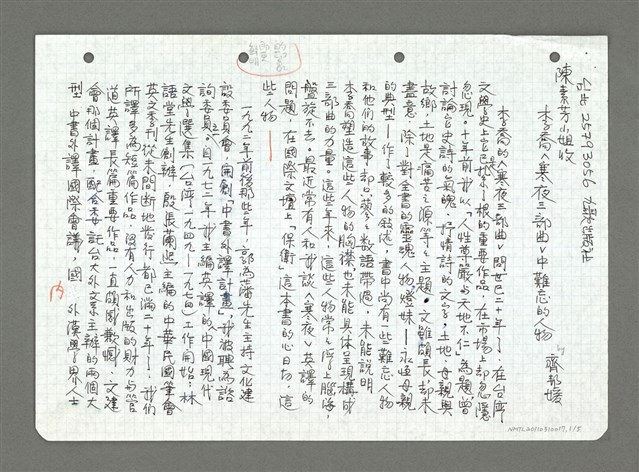 台北 25793056 九歌出版社
陳素芳小姐收
李喬〈寒夜三部曲〉中難忘的人物 齊邦媛
李喬的〈寒夜三部曲〉問世已二十年了，在台灣
文學史上它已根的重要作品，在市場上却忽隱
忽現。十年前我以「人性尊嚴與天地不仁」為題，曾
討論它史詩的氣魄，抒情詩的文字，土地、母親與
故鄉，土地是痛苦之源等主題。文雖頗長却未
盡意，除了對全書的靈魂人物燈妹——永恆母親
的典型——作了較多的敘述，書中尚有一些難忘人物
和他們的故事，却只寥寥數語帶過，未能說明
李喬塑造這些人物的胸襟，也未能具体呈現構成
三部曲的力量。這些年來，這些人物常在我腦海，
盤旋不去。最近常有人和我談〈寒夜〉英譯的
問題，在國際文壇上「保衛」這本書的心日切，這
些人物——
一九九二年前後那些年，郭為藩先生主持文化建
設委員會，開創「中書外譯計畫」，我被聘為諮
詢委員。自一九七二年我主編英譯的《中國現代
文學選集》（台灣一九四九—一九七四）工作開始，林
語堂先生創辦，殷張蘭熙主編的中華民國筆會
英文季刊從未間斷地發行都已滿二十年了，我們
所譯多為短篇作品，沒有人力和出版的財力與管
道英譯長篇重要作品，一直頗感歉憾。文建
會那個計畫，配合委託台大外文系主辦的兩個大
型 中書外譯國際會議，國內外漢學界人士
NMTL20110910017,1/5